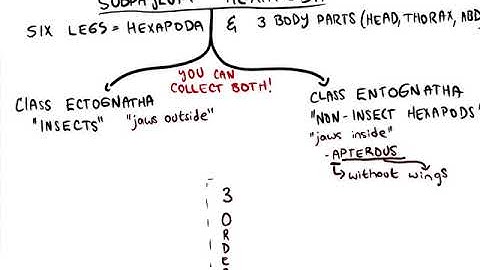 SUBPHYLUM HEXAPODA
SIX LEGS = HEXAPODA & 3 BODY PARTS (HEAD, THORAX, ABD
YOU CAN
COLLECT BOTH!
CLASS ECTOGNATHA
"INSECTS" "jaws outside"
CLASS ENTOGNATHA
"NON-INSECT HEXAPODS"
"jaws inside"
- APTEROUS
↳ without wings
3
O
R
D
E